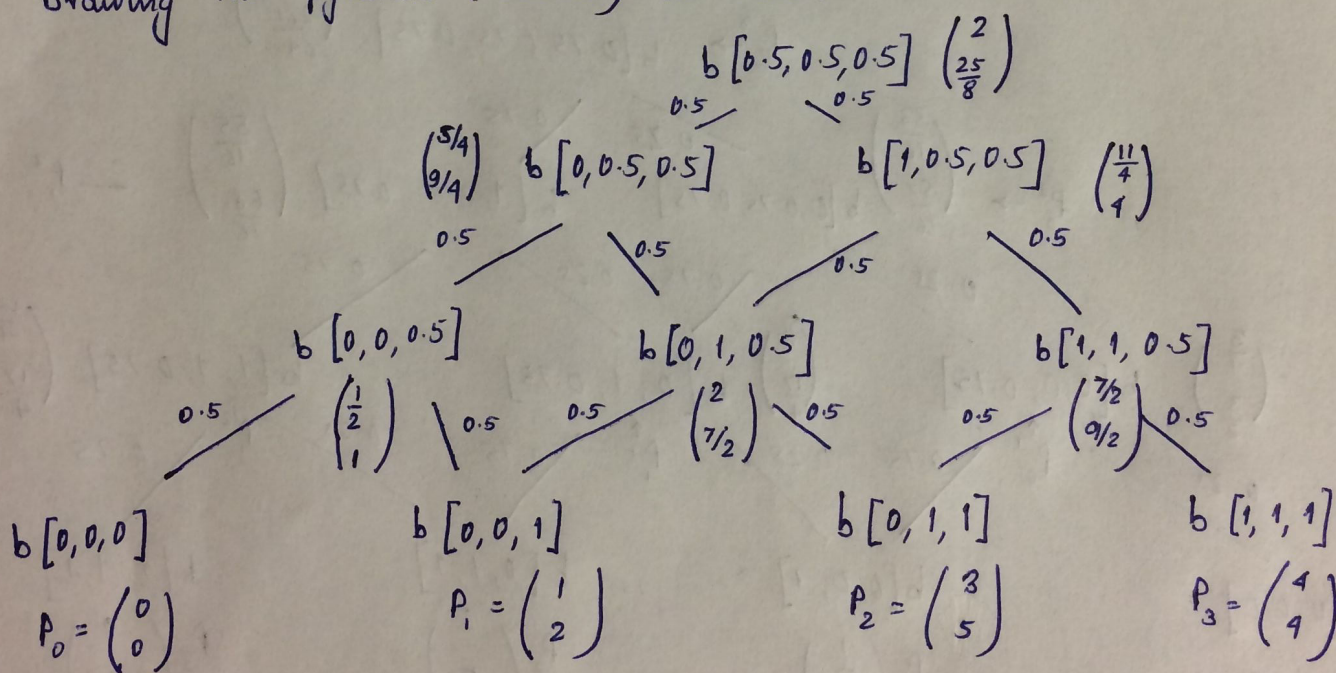 Drawing
b [0.5, 0.5, 0.5] (2 25/8)
0.5 0.5
(5/4 9/4) b [0, 0.5, 0.5] b [1, 0.5, 0.5] (11/4 4)
0.5 0.5 0.5 0.5
b [0, 0, 0.5] b [0, 1, 0.5] b [1, 1, 0.5]
(1/2 1) (2 7/2) (7/2 9/2)
0.5 0.5 0.5 0.5 0.5 0.5
b [0,0,0] b [0, 0, 1] b [0, 1, 1] b [1, 1, 1]
P0 = (0 0) P1 = (1 2) P2 = (3 5) P3 = (4 4)